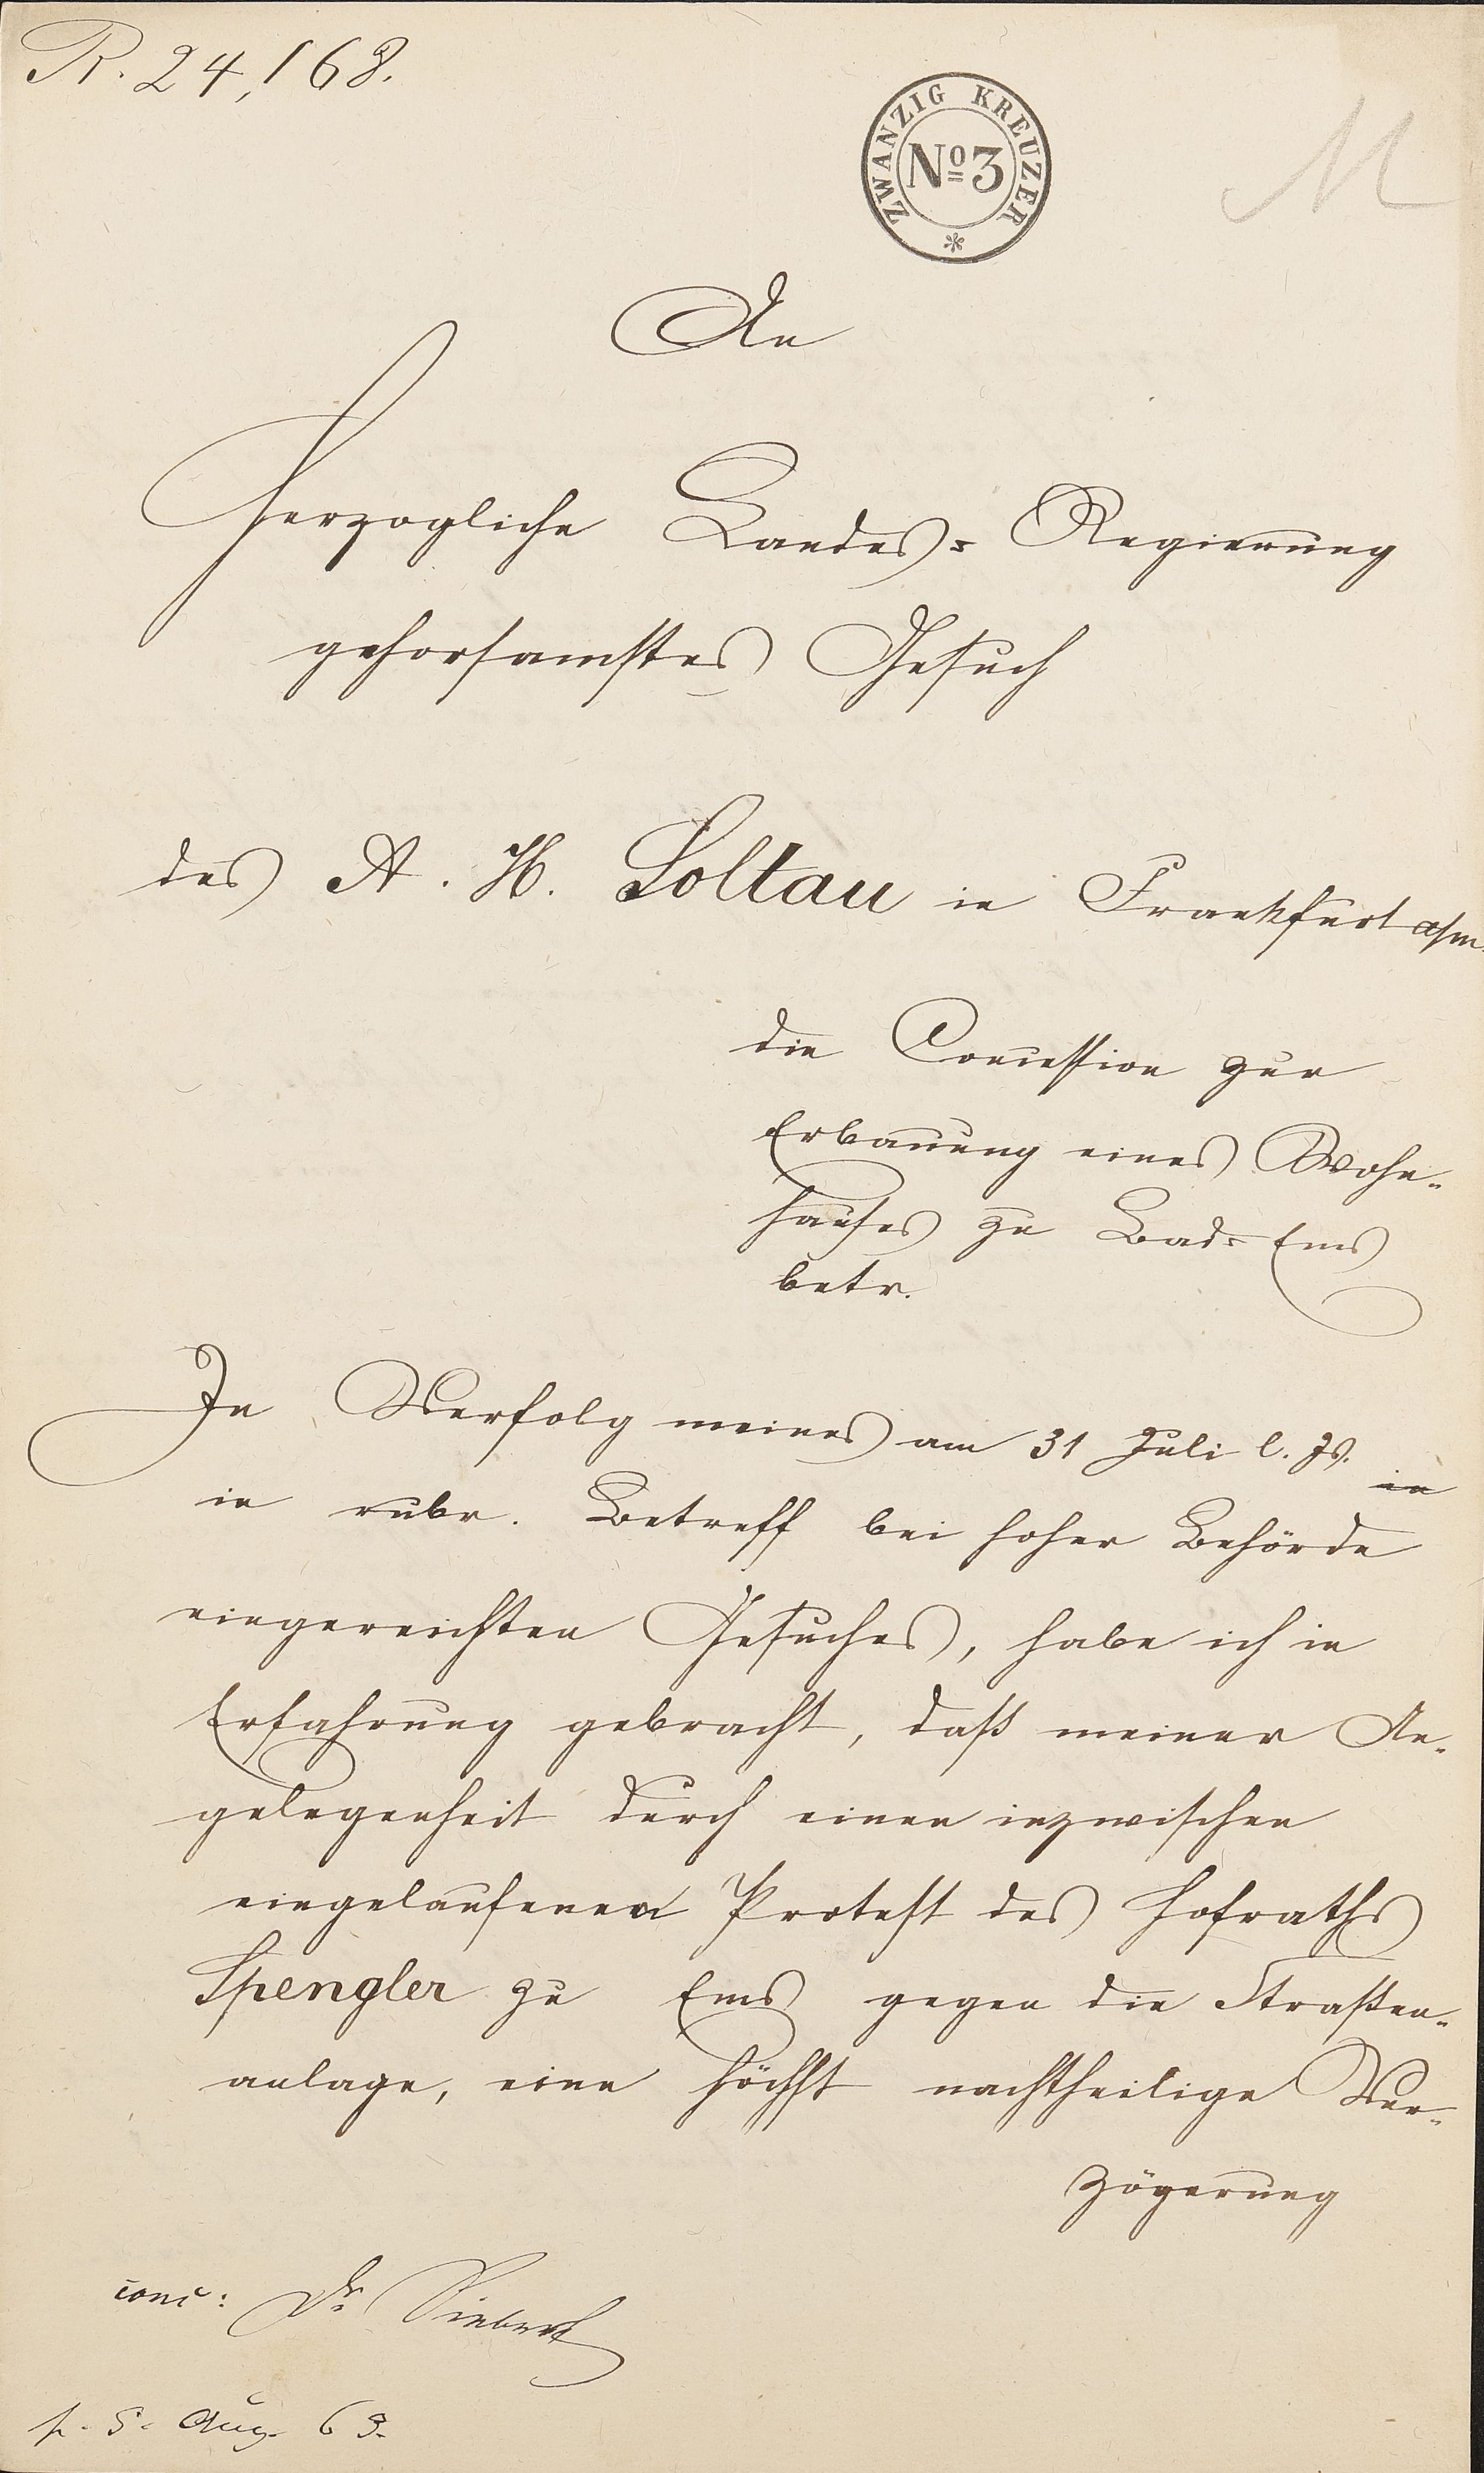 R. 24,163.
ZWANZIG KREUZER
No 3
M
An
Herzogliche Landes=Regierung
gehorsamstes Gesuch
des A. H. Soltau in Frankfurt a/m.
die Concession zur
Erbauung eines Wohn-
hauses zu Bad-Ems
betr.
In Verfolg meines am 31 Juli l. Js. in
in rubr. Betreff bei hoher Behörde
eingereichten Gesuches, habe ich in
Erfahrung gebracht, daß meiner An-
gelegenheit durch einen inzwischen
eingelaufenen Protest des Hofraths
Spengler zu Ems gegen die Straßen-
anlage, eine höchst nachtheilige Ver-
zögerung
conc: Dr Siebert
p. 5. Aug. 63.